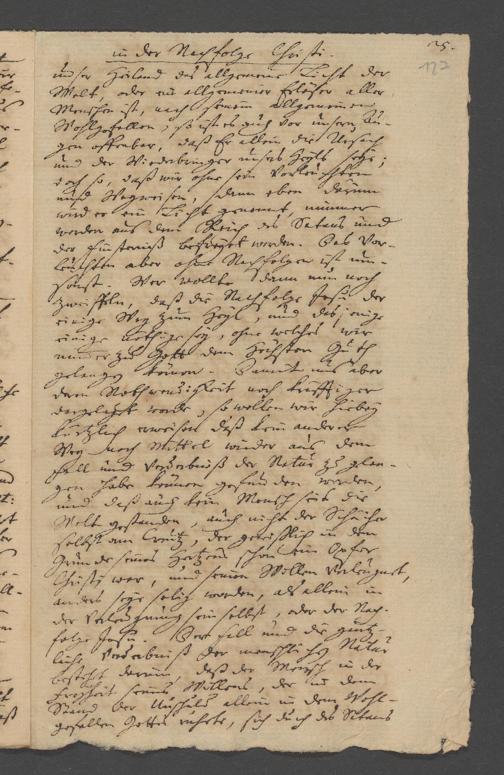 25.
127
in der Nachfolge Christi.
unser Heiland das allgemeine Licht der
Welt, oder ein allgemeiner Erlöser aller
Menschen ist, nach seinem allgemeinen
Wohlgefallen; so ist es auch vor unsern Au-
gen offenbar, daß Er allein die Ursach
und der Wiederbringer unsers Heyls seye;
doch so, daß wir ohne sein Vorleuchten
und Wegweisen, dann eben darum
wird er ein Licht genennt, nimmer
werden aus dem Reich des Satans und
der Finsterniß befreyet werden. Das Vor-
leuchten aber ohne Nachfolgen ist um-
sonst. Wer wollte dann nun noch
zweifflen, daß die Nachfolge Jesu der
einige Weg zum Heyl, und das jenige
einige nöthige sey, ohne welches wir
nimmer zu Gott dem Höchsten Guth
gelangen können. Damit uns aber
deren Nothwendigkeit noch kräfftiger
dargelegt werde, so wollen wir hiebey
kürtzlich erweisen daß kein anderer
Weg noch Mittel wieder aus dem
Fall und Verderbniß der Natur zu gelan-
gen habe können gefunden werden,
und daß auch kein Mensch seit die
Welt gestanden, auch nicht der Schächer
selbst am Creutz, der gewißlich in dem
Grunde seines Hertzens schon ein Opfer
Christi war, und seinen Willen verleugnet,
anders seye selig worden, als allein in
der Verleugnung sein selbst, oder der Nach-
folge Jesu. Der Fall und die gäntz-
liche Verderbniß der menschlichen Natur
besteht darinn, daß der Mensch in der
Freyheit seines Willens, der in dem
Stand der Unschuld allein in dem Wohl-
gefallen Gottes ruhete, sich durch des Satans